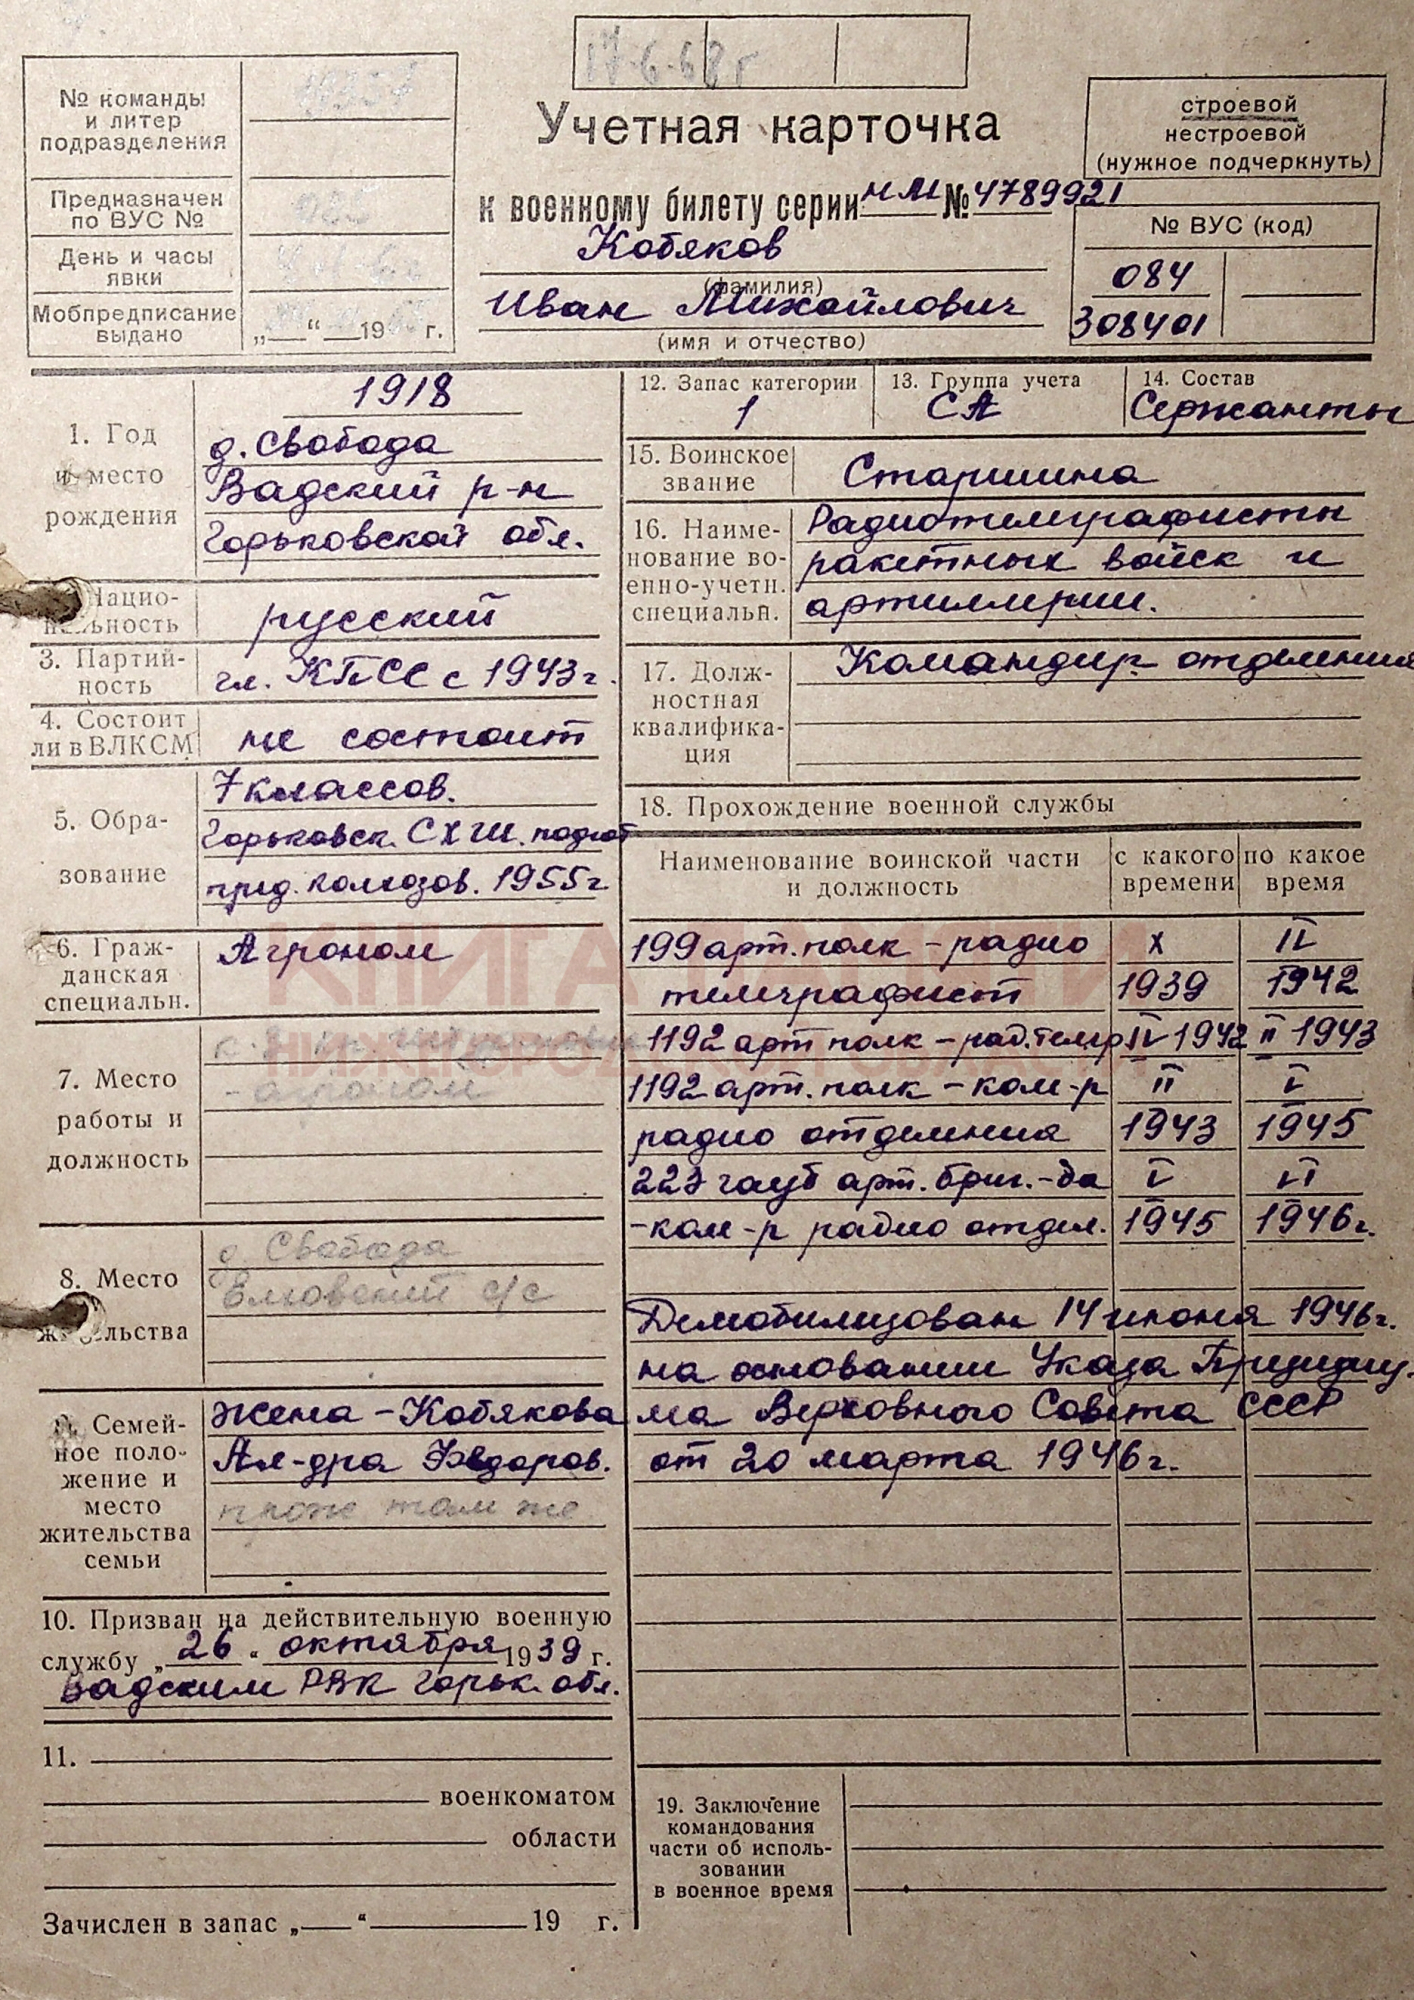 17.6.68 г
Учетная карточка
к военному билету серии НМ № 4789921
Кобяков
(фамилия)
Иван Михайлович
(имя и отчество)
№ команды
и литер
подразделения
Предназначен
по ВУС №
День и часы
явки
Мобпредписание
выдано
„ “ 19 г.
строевой
нестроевой
(нужное подчеркнуть)
№ ВУС (код)
084
308401
1. Год
и место
рождения
1918
д. Свобода
Вадский р-н
Горьковской обл.
Нацио-
нальность
русский
3. Партий-
ность
чл. КПСС с 1943 г.
4. Состоит
ли в ВЛКСМ
не состоит
5. Обра-
зование
7 классов.
Горьковск. СХШ. подгот
пред. колхозов. 1955 г
6. Граж-
данская
специальн.
Агроном
7. Место
работы и
должность
- агроном
8. Место
жительства
д. Свобода
Елховский с/с
9. Семей-
ное поло-
жение и
место
жительства
семьи
жена - Кобякова
Ал-дра Федоров.
прож там же
10. Призван на действительную военную
службу „26“ октября 1939 г.
Вадским РВК Горьк. обл.
11.
военкоматом
области
Зачислен в запас „ “ 19 г.
12. Запас категории
1
13. Группа учета
СА
14. Состав
Сержанты
15. Воинское
звание
Старшина
16. Наиме-
нование во-
енно-учетн.
специальн.
Радиотелеграфисты
ракетных войск и
артиллерии.
17. Долж-
ностная
квалифика-
ция
Командир отделения
18. Прохождение военной службы
Наименование воинской части
и должность
с какого
времени
по какое
время
199 арт. полк - радио X IV
телеграфист 1939 1942
1192 арт полк - рад.телегр IV 1942 II 1943
1192 арт. полк - ком-р II V
радио отделения 1943 1945
223 гауб арт. бриг.-да V VI
- ком-р радио отдел. 1945 1946 г.
Демобилизован 14 июня 1946 г.
на основании Указа Президиу-
ма Верховного Совета СССР
от 20 марта 1946 г.
19. Заключение
командования
части об исполь-
зовании
в военное время
КНИГА ПАМЯТИ
НИЖЕГОРОДСКОЙ ОБЛАСТИ